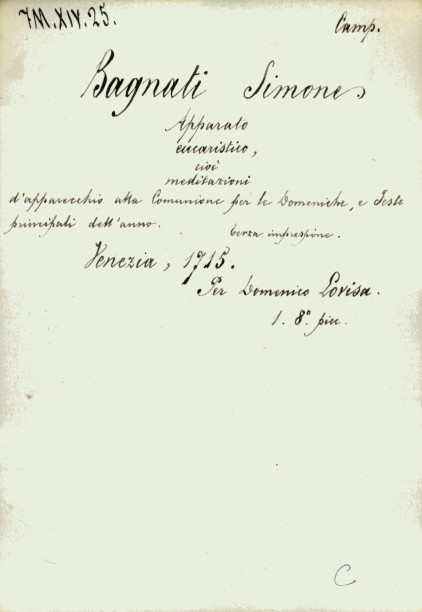 7M.XIV.25.
Camp.
Bagnati Simone
Apparato
eucaristico,
cioè
meditazioni
d'apparecchio alla Comunione per le Domeniche, e Feste
principali dell'anno.
terza impressione.
Venezia, 1715.
Per Domenico Lovisa.
1. 8° picc.
C